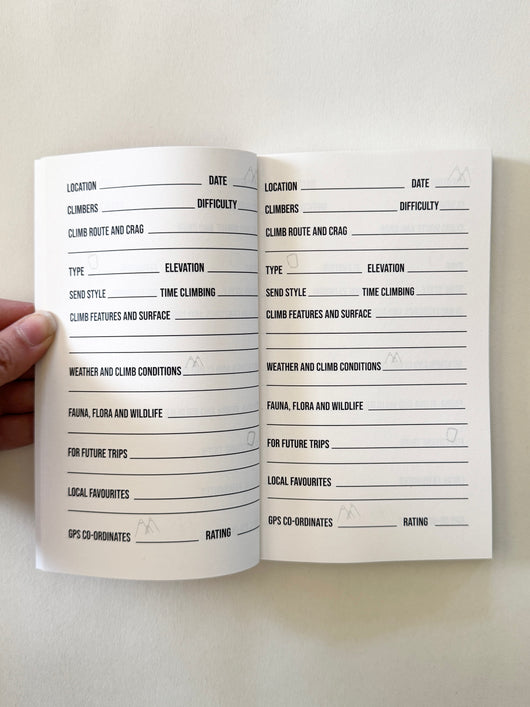 LOCATION DATE
CLIMBERS DIFFICULTY
CLIMB ROUTE AND CRAG
TYPE ELEVATION
SEND STYLE TIME CLIMBING
CLIMB FEATURES AND SURFACE
WEATHER AND CLIMB CONDITIONS
FAUNA, FLORA AND WILDLIFE
FOR FUTURE TRIPS
LOCAL FAVOURITES
GPS CO-ORDINATES RATING
LOCATION DATE
CLIMBERS DIFFICULTY
CLIMB ROUTE AND CRAG
TYPE ELEVATION
SEND STYLE TIME CLIMBING
CLIMB FEATURES AND SURFACE
WEATHER AND CLIMB CONDITIONS
FAUNA, FLORA AND WILDLIFE
FOR FUTURE TRIPS
LOCAL FAVOURITES
GPS CO-ORDINATES RATING